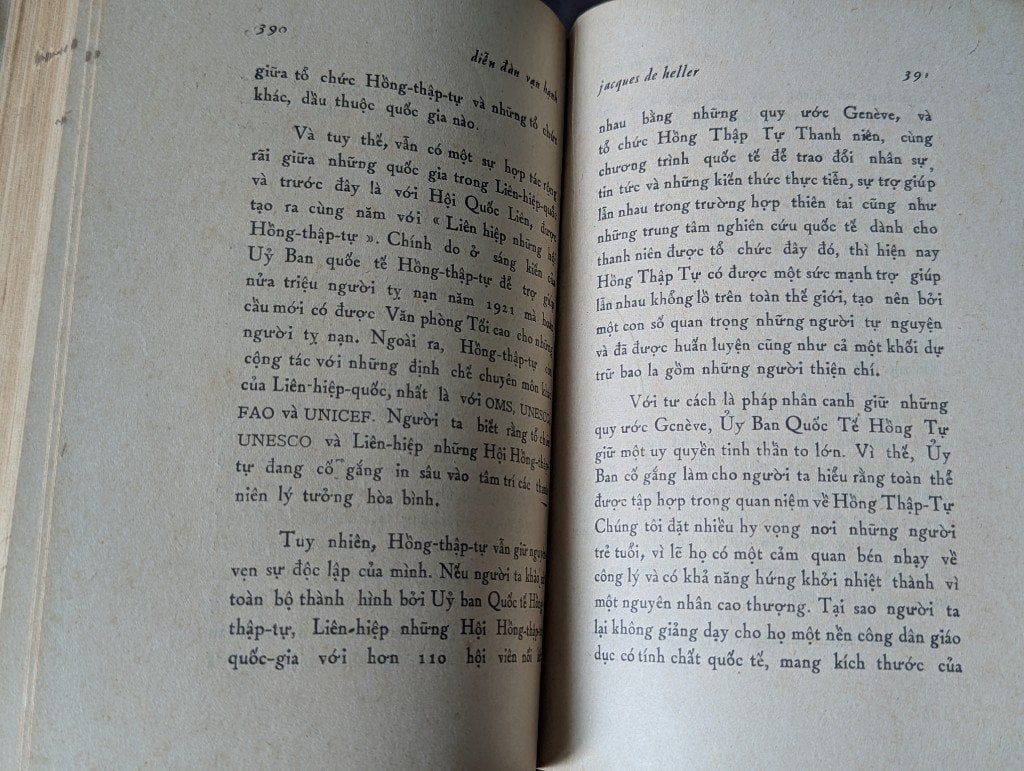 390
diễn đàn vạn hạnh
giữa tổ chức Hồng-thập-tự và những tổ chức
khác, dầu thuộc quốc gia nào.
Và tuy thế, vẫn có một sự hợp tác rộng
rãi giữa những quốc gia trong Liên-hiệp-quốc
và trước đây là với Hội Quốc Liên, được
tạo ra cùng năm với « Liên hiệp những hội
Hồng-thập-tự ». Chính do ở sáng kiến của
Uỷ Ban quốc tế Hồng-thập-tự để trợ giúp
nửa triệu người tỵ nạn năm 1921 mà hoàn
cầu mới có được Văn phòng Tối cao cho những
người tỵ nạn. Ngoài ra, Hồng-thập-tự còn
cộng tác với những định chế chuyên môn khác
của Liên-hiệp-quốc, nhất là với OMS, UNESCO,
FAO và UNICEF. Người ta biết rằng tổ chức
UNESCO và Liên-hiệp những Hội Hồng-thập-
tự đang cố gắng in sâu vào tâm trí các thanh
niên lý tưởng hòa bình.
Tuy nhiên, Hồng-thập-tự vẫn giữ nguyên
vẹn sự độc lập của mình. Nếu người ta khảo
toàn bộ thành hình bởi Uỷ ban Quốc tế Hồng-
thập-tự, Liên-hiệp những Hội Hồng-thập-tự
quốc-gia với hơn 110 hội viên nối
jacques de heller
391
nhau bằng những quy ước Genève, và
tổ chức Hồng Thập Tự Thanh niên, cùng
chương trình quốc tế để trao đổi nhân sự,
tin tức và những kiến thức thực tiễn, sự trợ giúp
lẫn nhau trong trường hợp thiên tai cũng như
những trung tâm nghiên cứu quốc tế dành cho
thanh niên được tổ chức đây đó, thì hiện nay
Hồng Thập Tự có được một sức mạnh trợ giúp
lẫn nhau khổng lồ trên toàn thế giới, tạo nên bởi
một con số quan trọng những người tự nguyện
và đã được huấn luyện cũng như cả một khối dự
trữ bao la gồm những người thiện chí.
Với tư cách là pháp nhân canh giữ những
quy ước Genève, Ủy Ban Quốc Tế Hồng Tự
giữ một uy quyền tinh thần to lớn. Vì thế, Ủy
Ban cố gắng làm cho người ta hiểu rằng toàn thể
được tập hợp trong quan niệm về Hồng Thập-Tự
Chúng tôi đặt nhiều hy vọng nơi những người
trẻ tuổi, vì lẽ họ có một cảm quan bén nhạy về
công lý và có khả năng hứng khởi nhiệt thành vì
một nguyên nhân cao thượng. Tại sao người ta
lại không giảng dạy cho họ một nền công dân giáo
dục có tính chất quốc tế, mang kích thước của